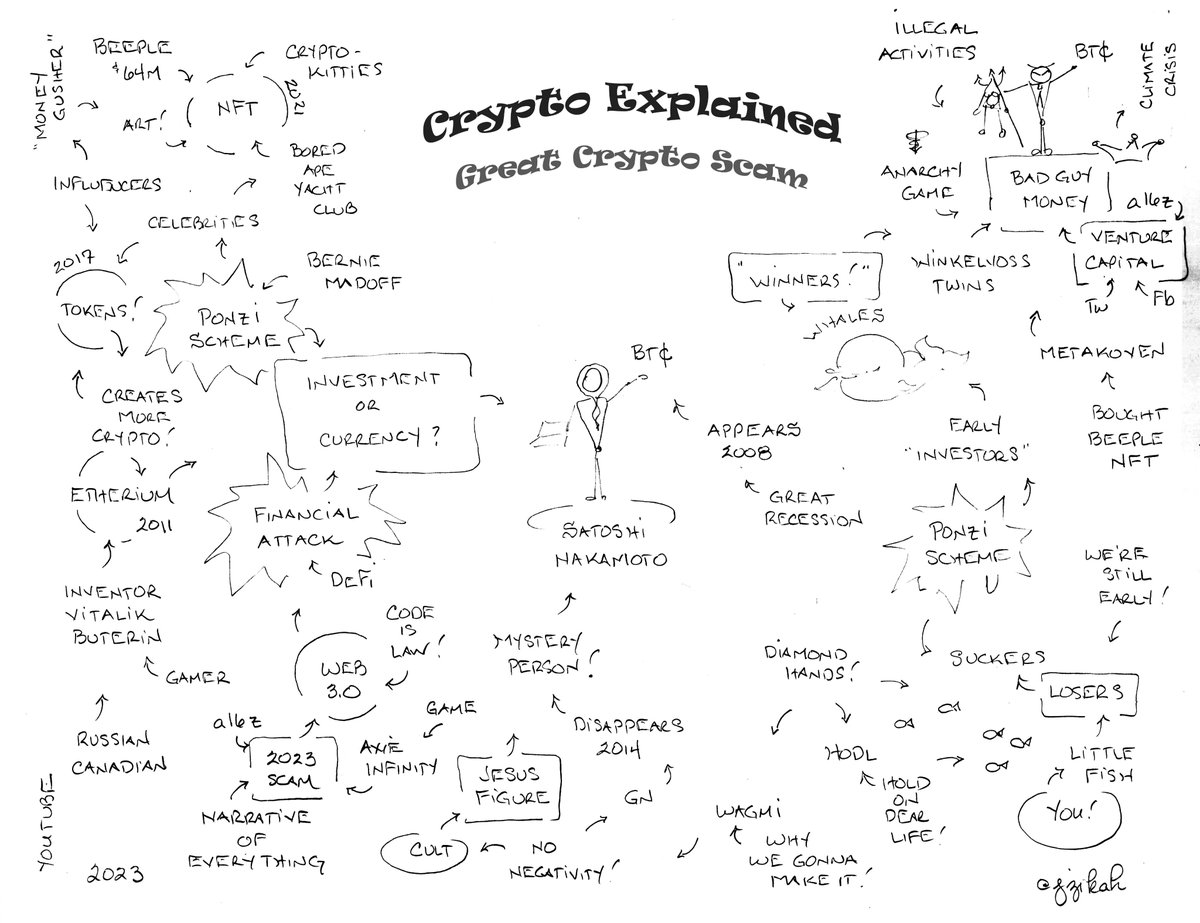 Crypto Explained
Great Crypto Scam
"MONEY
GUSHER"
BEEPLE
$64M
CRYPTO-
KITTIES
NFT
2021
ART!
BORED
APE
YACHT
CLUB
INFLUENCERS
CELEBRITIES
2017
TOKENS!
BERNIE
MADOFF
PONZI
SCHEME
INVESTMENT
OR
CURRENCY?
CREATES
MORE
CRYPTO!
ETHERIUM
2011
FINANCIAL
ATTACK
DEFI
INVENTOR
VITALIK
BUTERIN
GAMER
RUSSIAN
CANADIAN
CODE
IS
LAW!
WEB
3.0
a16z
2023
SCAM
GAME
AXIE
INFINITY
NARRATIVE
OF
EVERYTHING
YOUTUBE
2023
BT¢
SATOSHI
NAKAMOTO
APPEARS
2008
GREAT
RECESSION
MYSTERY
PERSON!
DISAPPEARS
2014
JESUS
FIGURE
GN
CULT
NO
NEGATIVITY!
WAGMI
WHY
WE GONNA
MAKE IT!
ILLEGAL
ACTIVITIES
BT¢
CLIMATE
CRISIS
$
ANARCHY
GAME
BAD GUY
MONEY
a16z
VENTURE
CAPITAL
Tw
Fb
"WINNERS!"
WINKELVOSS
TWINS
WHALES
METAKOVEN
EARLY
"INVESTORS"
BOUGHT
BEEPLE
NFT
PONZI
SCHEME
WE'RE
STILL
EARLY!
DIAMOND
HANDS!
SUCKERS
LOSERS
HODL
LITTLE
FISH
HOLD
ON
DEAR
LIFE!
YOU!
@fzikah